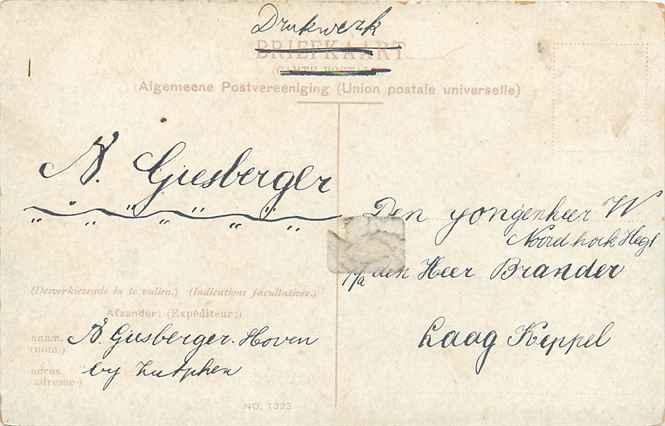 Drukwerk
BRIEFKAART
CARTE POSTALE
Algemeene Postvereeniging (Union postale universelle)
A. Giesberger
Den Jongenheer W.
Noordhoek Hegt
p/a den Heer Brander
Laag Keppel
(Desverkiezende in te vullen.) (Indications facultatives.)
Afzender: (Expéditeur:)
naam. (nom.) A. Giesberger. Hoven
adres. (adresse.) by Zutphen
NO. 1323